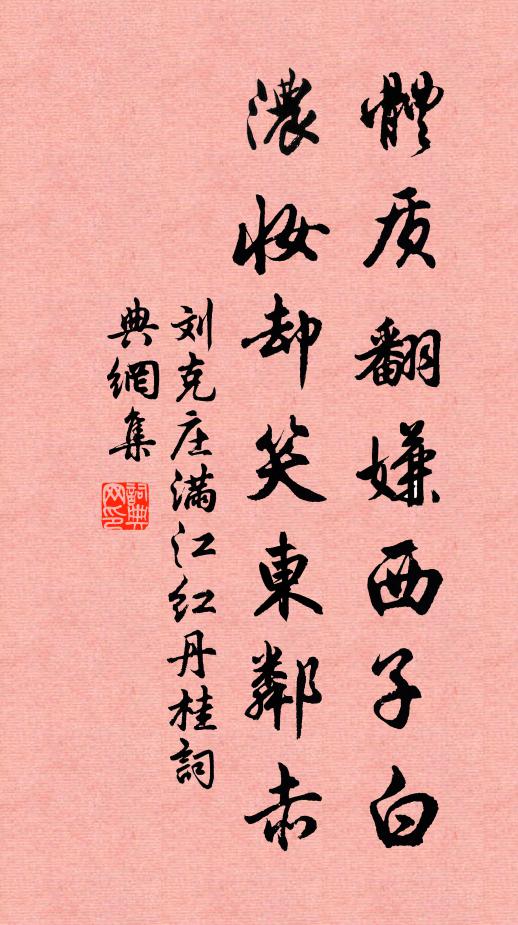 體质翻嫌西子白
濃妝却笑東鄰赤
刘克庄满江红丹桂詞
典網集
詞典網印